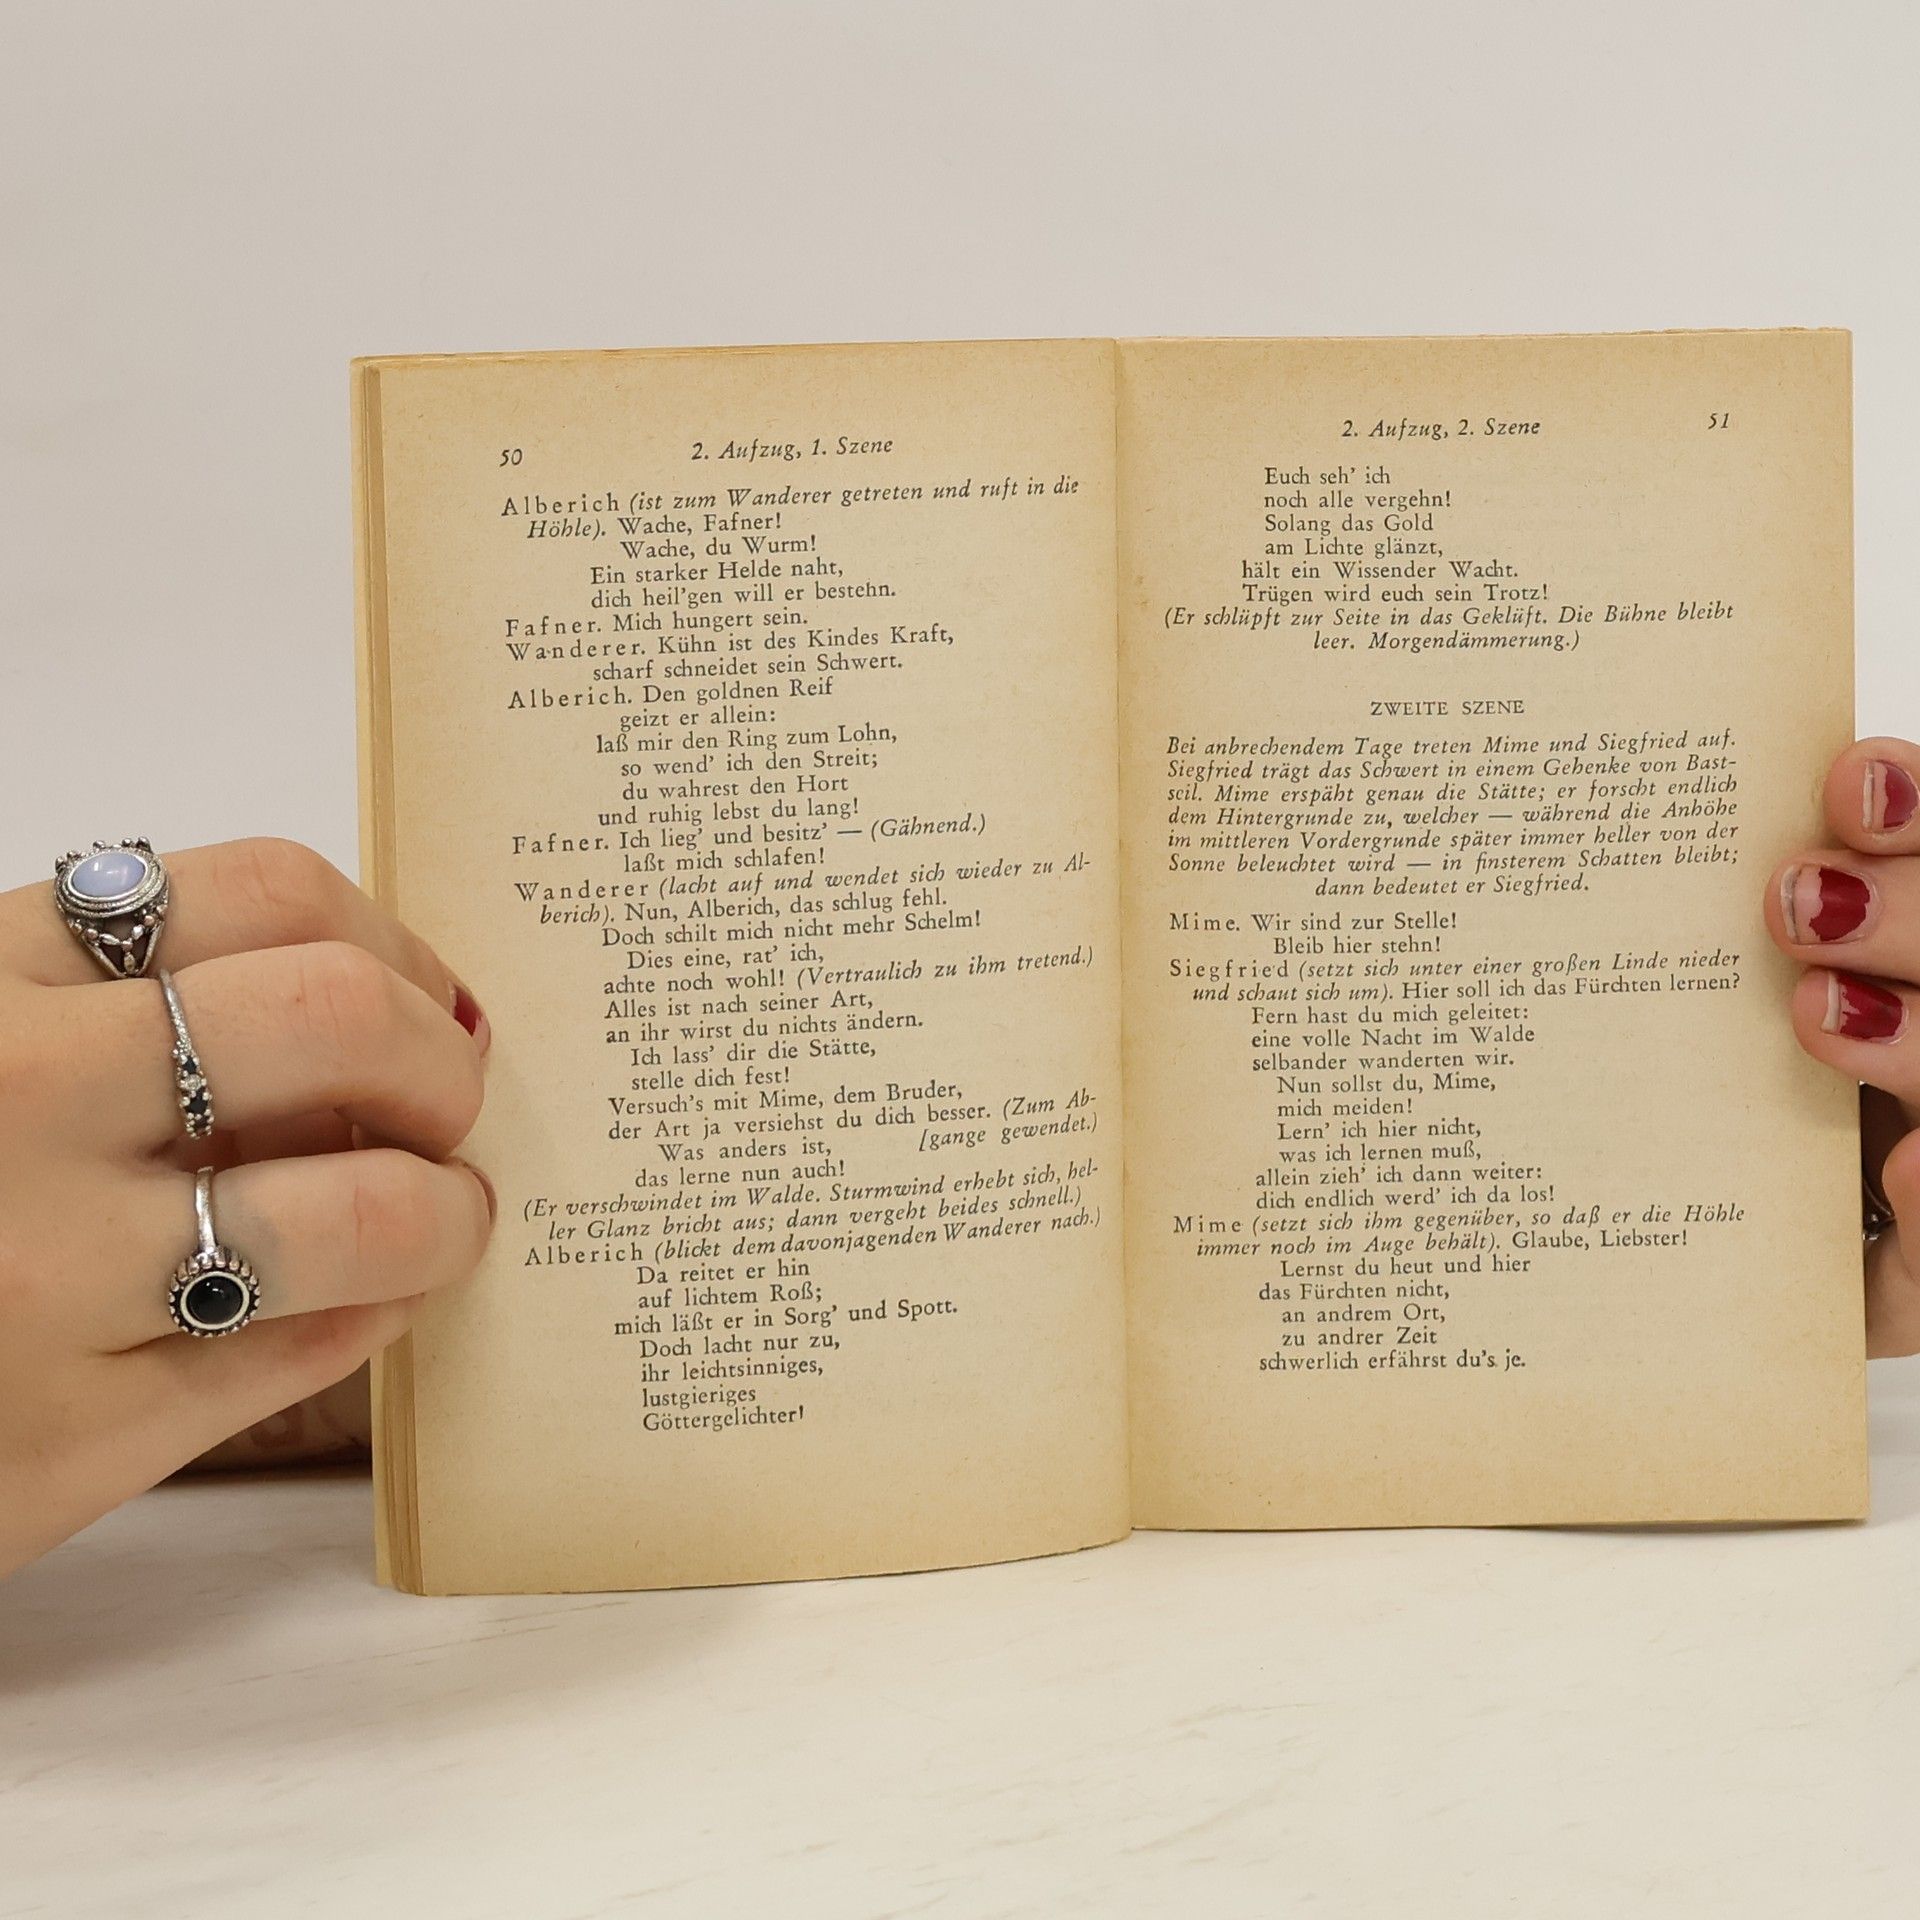 50
2. Aufzug, 1. Szene
Alberich (ist zum Wanderer getreten und ruft in die
Höhle). Wache, Fafner!
Wache, du Wurm!
Ein starker Helde naht,
dich heil'gen will er bestehn.
Fafner. Mich hungert sein.
Wanderer. Kühn ist des Kindes Kraft,
scharf schneidet sein Schwert.
Alberich. Den goldnen Reif
geizt er allein:
laß mir den Ring zum Lohn,
so wend' ich den Streit;
du wahrest den Hort
und ruhig lebst du lang!
Fafner. Ich lieg' und besitz' — (Gähnend.)
laßt mich schlafen!
Wanderer (lacht auf und wendet sich wieder zu Al-
berich). Nun, Alberich, das schlug fehl.
Doch schilt mich nicht mehr Schelm!
Dies eine, rat' ich,
achte noch wohl! (Vertraulich zu ihm tretend.)
Alles ist nach seiner Art,
an ihr wirst du nichts ändern.
Ich lass' dir die Stätte,
stelle dich fest!
Versuch's mit Mime, dem Bruder,
der Art ja versiehst du dich besser. (Zum Ab-
Was anders ist, [gange gewendet.)
das lerne nun auch!
(Er verschwindet im Walde. Sturmwind erhebt sich, hel-
ler Glanz bricht aus; dann vergeht beides schnell.)
Alberich (blickt dem davonjagenden Wanderer nach.)
Da reitet er hin
auf lichtem Roß;
mich läßt er in Sorg' und Spott.
Doch lacht nur zu,
ihr leichtsinniges,
lustgieriges
Göttergelichter!
2. Aufzug, 2. Szene
51
Euch seh' ich
noch alle vergehn!
Solang das Gold
am Lichte glänzt,
hält ein Wissender Wacht.
Trügen wird euch sein Trotz!
(Er schlüpft zur Seite in das Geklüft. Die Bühne bleibt
leer. Morgendämmerung.)
ZWEITE SZENE
Bei anbrechendem Tage treten Mime und Siegfried auf.
Siegfried trägt das Schwert in einem Gehenke von Bast-
seil. Mime erspäht genau die Stätte; er forscht endlich
dem Hintergrunde zu, welcher — während die Anhöhe
im mittleren Vordergrunde später immer heller von der
Sonne beleuchtet wird — in finsterem Schatten bleibt;
dann bedeutet er Siegfried.
Mime. Wir sind zur Stelle!
Bleib hier stehn!
Siegfried (setzt sich unter einer großen Linde nieder
und schaut sich um). Hier soll ich das Fürchten lernen?
Fern hast du mich geleitet:
eine volle Nacht im Walde
selbander wanderten wir.
Nun sollst du, Mime,
mich meiden!
Lern' ich hier nicht,
was ich lernen muß,
allein zieh' ich dann weiter:
dich endlich werd' ich da los!
Mime (setzt sich ihm gegenüber, so daß er die Höhle
immer noch im Auge behält). Glaube, Liebster!
Lernst du heut und hier
das Fürchten nicht,
an andrem Ort,
zu andrer Zeit
schwerlich erfährst du's je.